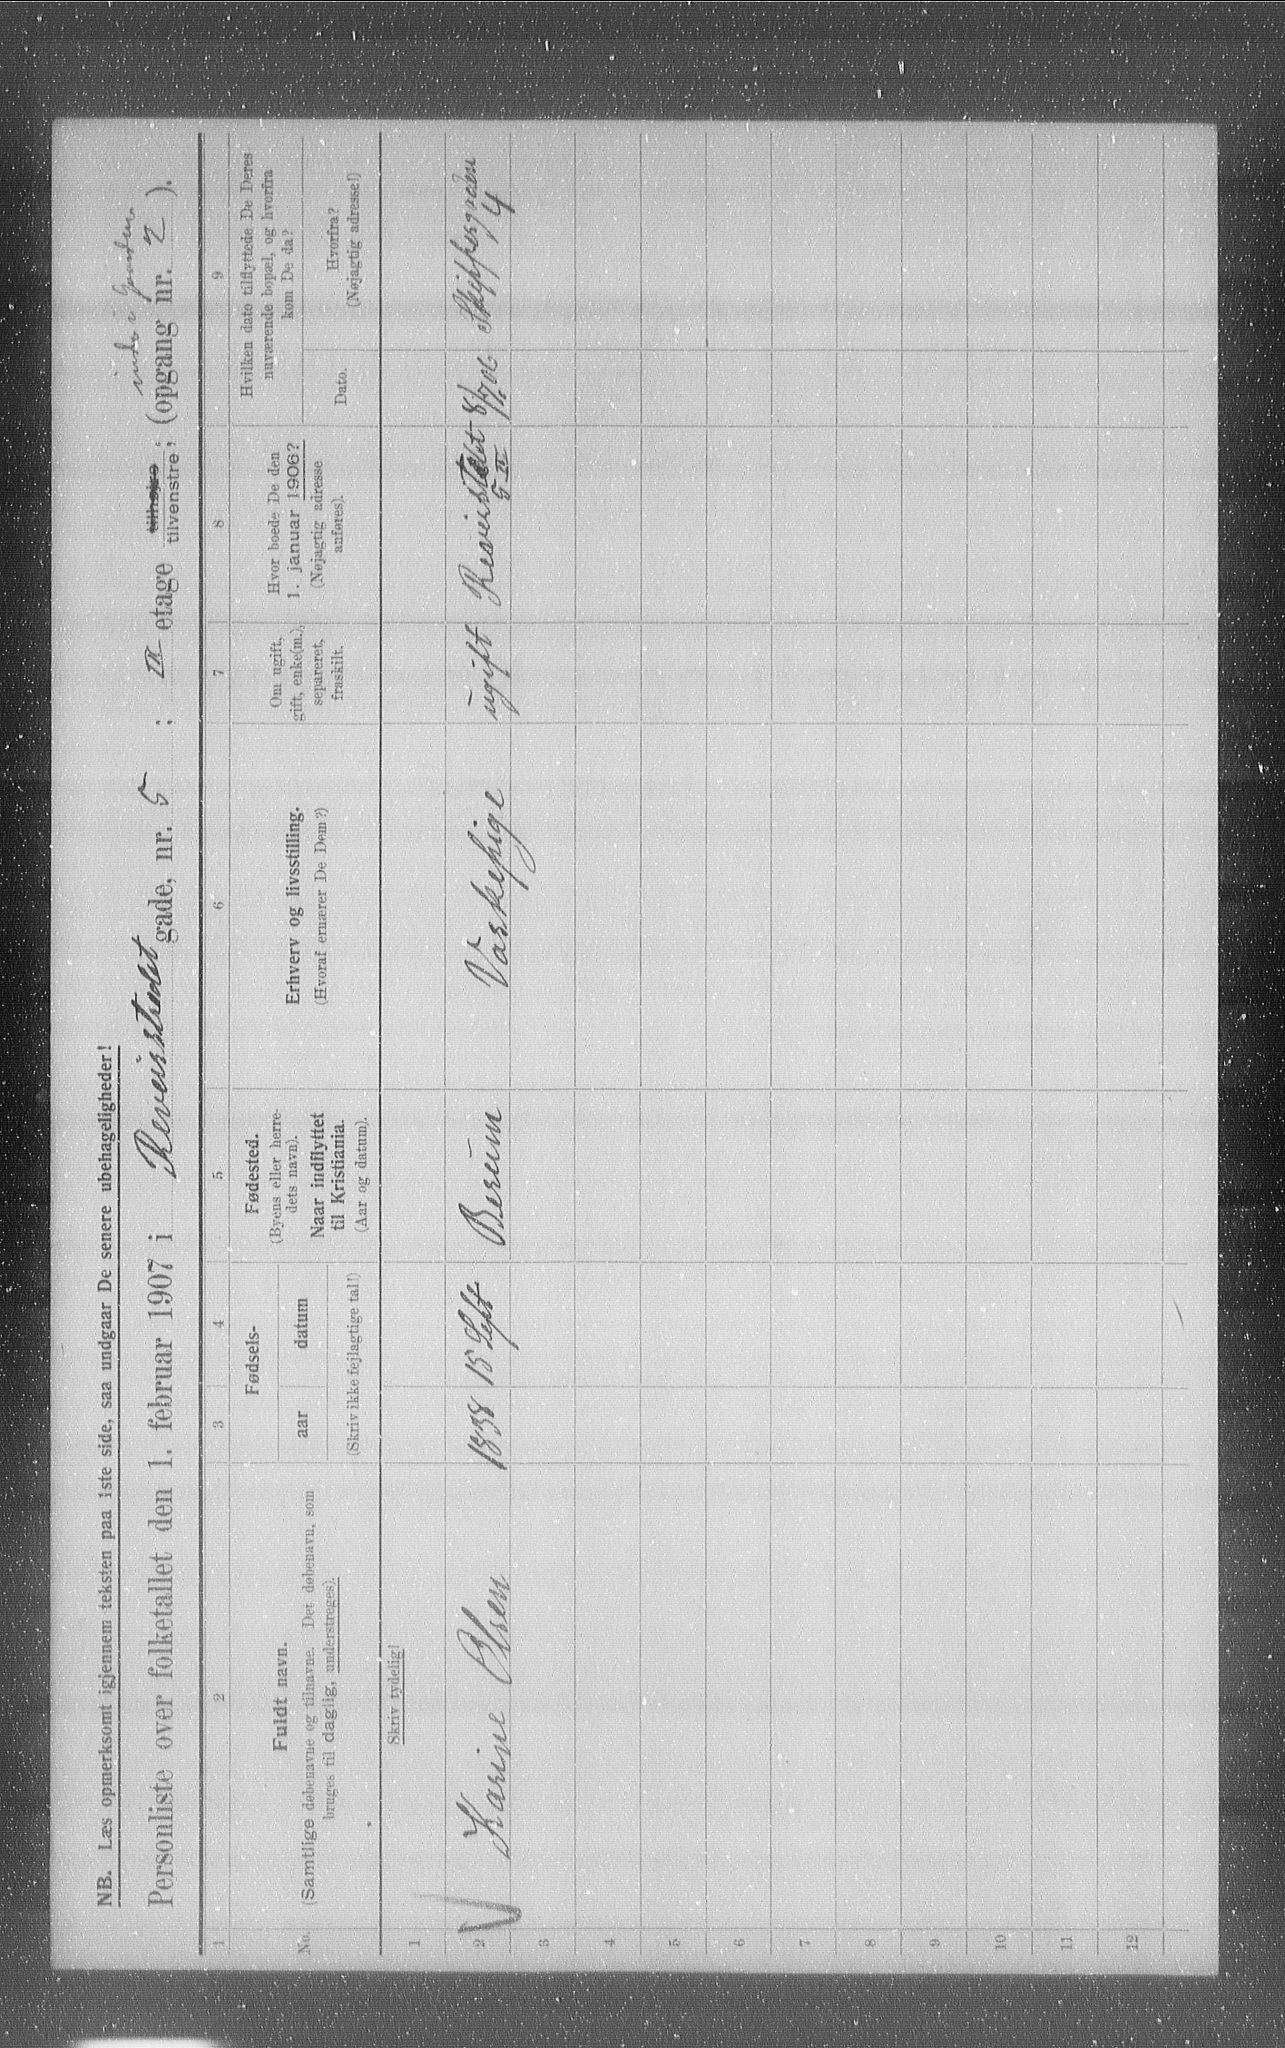 NB. Læs opmerksomt igjennem teksten paa 1ste side, saa undgaar De senere ubehageligheder!
inde i Gaarden
Personliste over folketallet den 1. februar 1907 i Revierstrædet gade, nr. 5 ; IV etage tilhøjre tilvenstre; (opgang nr. 2 ).
1 2 3 4 5 6 7 8 9
No.
Fuldt navn.
(Samtlige døbenavne og tilnavne. Det døbenavn, som
bruges til daglig, understreges).
Fødsels-
aar datum
(Skriv ikke fejlagtige tal!)
Fødested.
(Byens eller herre-
dets navn).
Naar indflyttet
til Kristiania.
(Aar og datum).
Erhverv og livsstilling.
(Hvoraf ernærer De Dem?)
Om ugift,
gift, enke(m.),
separeret,
fraskilt.
Hvor boede De den
1. januar 1906?
(Nøjagtig adresse
anføres).
Hvilken dato tilflyttede De Deres
nuværende bopæl, og hvorfra
kom De da?
Dato.
Hvorfra?
(Nøjagtig adresse!)
Skriv tydelig!
1
2 Karine Olsen 1838 15 Sept Berum Vaskepige ugift Revierstrædet 5 IV Skippergaden 4
3
4
5
6
7
8
9
10
11
12